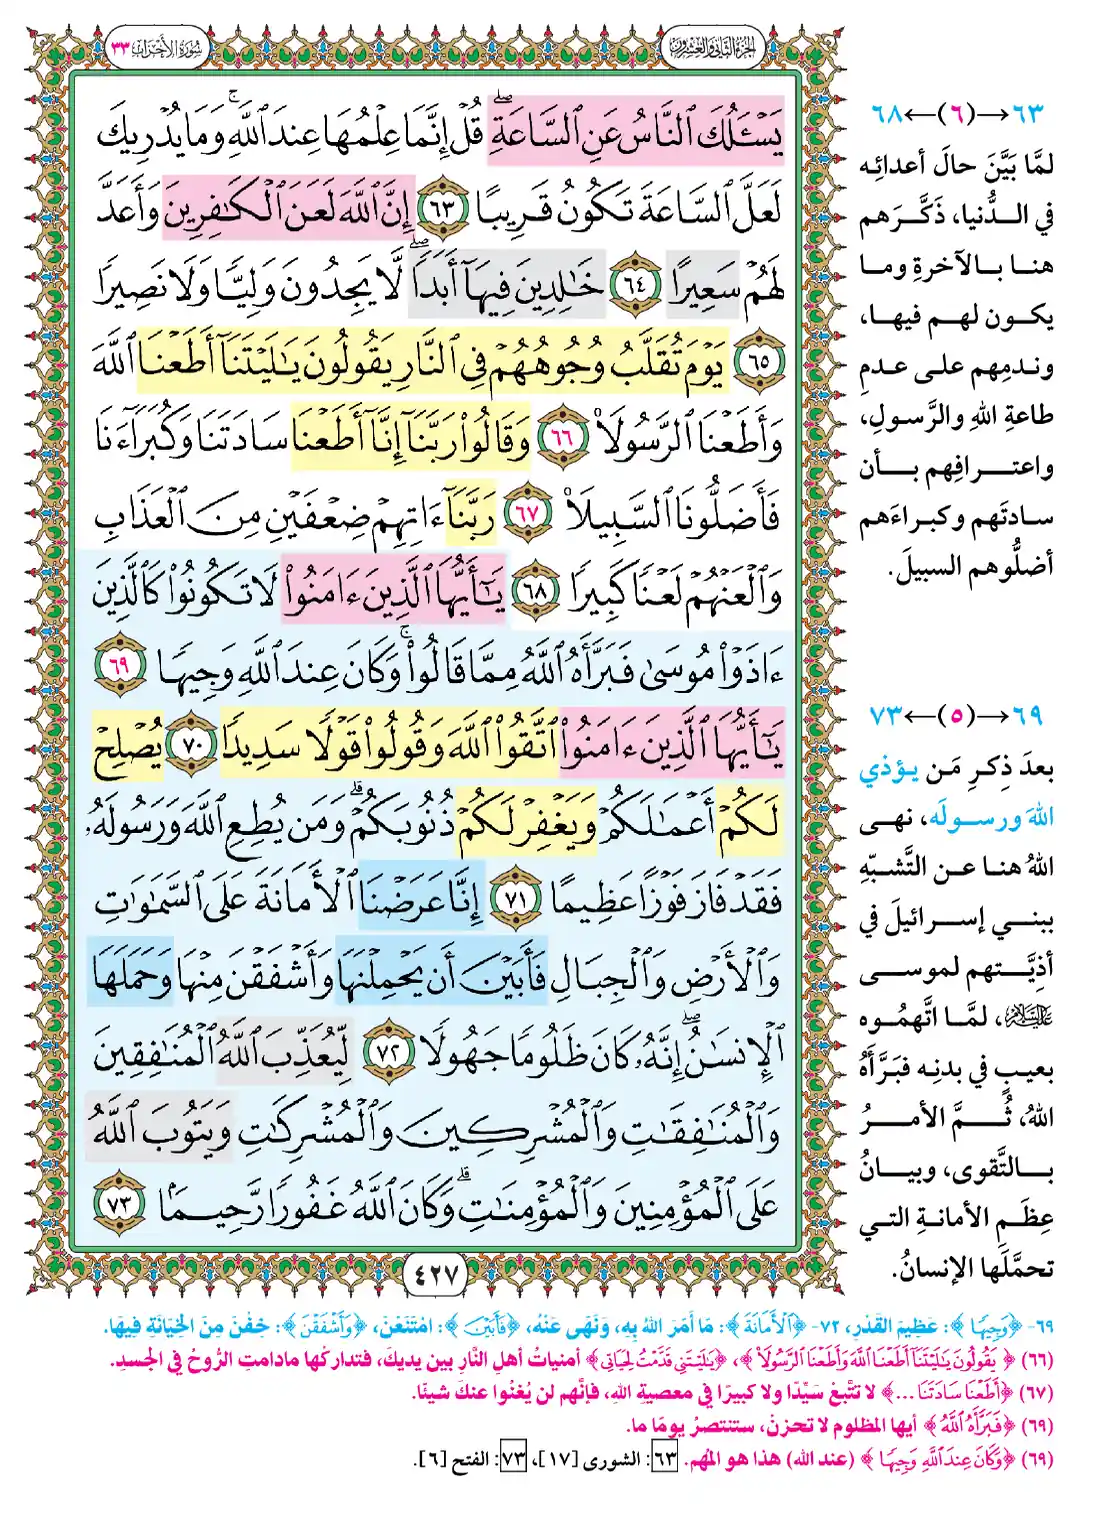 الجزء الثاني والعشرون
سورة الأحزاب ٣٣
يَسْـَٔلُكَ ٱلنَّاسُ عَنِ ٱلسَّاعَةِۖ قُلْ إِنَّمَا عِلْمُهَا عِندَ ٱللَّهِۚ وَمَا يُدْرِيكَ
لَعَلَّ ٱلسَّاعَةَ تَكُونُ قَرِيبًا ٦٣ إِنَّ ٱللَّهَ لَعَنَ ٱلْكَٰفِرِينَ وَأَعَدَّ
لَهُمْ سَعِيرًا ٦٤ خَٰلِدِينَ فِيهَآ أَبَدًاۖ لَّا يَجِدُونَ وَلِيًّا وَلَا نَصِيرًا
٦٥ يَوْمَ تُقَلَّبُ وُجُوهُهُمْ فِي ٱلنَّارِ يَقُولُونَ يَٰلَيْتَنَآ أَطَعْنَا ٱللَّهَ
وَأَطَعْنَا ٱلرَّسُولَا۠ ٦٦ وَقَالُوا۟ رَبَّنَآ إِنَّآ أَطَعْنَا سَادَتَنَا وَكُبَرَآءَنَا
فَأَضَلُّونَا ٱلسَّبِيلَا۠ ٦٧ رَبَّنَآ ءَاتِهِمْ ضِعْفَيْنِ مِنَ ٱلْعَذَابِ
وَٱلْعَنْهُمْ لَعْنًا كَبِيرًا ٦٨ يَٰٓأَيُّهَا ٱلَّذِينَ ءَامَنُوا۟ لَا تَكُونُوا۟ كَٱلَّذِينَ
ءَاذَوْا۟ مُوسَىٰ فَبَرَّأَهُ ٱللَّهُ مِمَّا قَالُوا۟ۚ وَكَانَ عِندَ ٱللَّهِ وَجِيهًا ٦٩
يَٰٓأَيُّهَا ٱلَّذِينَ ءَامَنُوا۟ ٱتَّقُوا۟ ٱللَّهَ وَقُولُوا۟ قَوْلًا سَدِيدًا ٧٠ يُصْلِحْ
لَكُمْ أَعْمَٰلَكُمْ وَيَغْفِرْ لَكُمْ ذُنُوبَكُمْۗ وَمَن يُطِعِ ٱللَّهَ وَرَسُولَهُۥ
فَقَدْ فَازَ فَوْزًا عَظِيمًا ٧١ إِنَّا عَرَضْنَا ٱلْأَمَانَةَ عَلَى ٱلسَّمَٰوَٰتِ
وَٱلْأَرْضِ وَٱلْجِبَالِ فَأَبَيْنَ أَن يَحْمِلْنَهَا وَأَشْفَقْنَ مِنْهَا وَحَمَلَهَا
ٱلْإِنسَٰنُۖ إِنَّهُۥ كَانَ ظَلُومًا جَهُولًا ٧٢ لِّيُعَذِّبَ ٱللَّهُ ٱلْمُنَٰفِقِينَ
وَٱلْمُنَٰفِقَٰتِ وَٱلْمُشْرِكِينَ وَٱلْمُشْرِكَٰتِ وَيَتُوبَ ٱللَّهُ
عَلَى ٱلْمُؤْمِنِينَ وَٱلْمُؤْمِنَٰتِۗ وَكَانَ ٱللَّهُ غَفُورًا رَّحِيمًۢا ٧٣
٤٢٧
٦٣→(٦)←٦٨
لمَّا بَيَّنَ حالَ أعدائِه
في الدُّنيا، ذَكَّرَهم
هنا بالآخرةِ وما
يكون لهم فيها،
وندمِهم على عدمِ
طاعةِ اللهِ والرَّسولِ،
واعترافِهم بأن
سادتَهم وكبراءَهم
أضلُّوهم السبيلَ.
٦٩→(٥)←٧٣
بعدَ ذِكرِ مَن يؤذي
اللهَ ورسولَه، نهى
اللهُ هنا عن التَّشبّهِ
ببني إسرائيلَ في
أذِيَّتهم لموسى
عَلَيْهِ السَّلَام، لمَّا اتَّهمُوه
بعيبٍ في بدنِه فبَرَّأَهُ
اللهُ، ثُمَّ الأمرُ
بالتَّقوى، وبيانُ
عِظَمِ الأمانةِ التي
تحمَّلَها الإنسانُ.
٦٩- ﴿وَجِيهًا﴾: عَظِيمَ القَدْرِ، ٧٢- ﴿ٱلْأَمَانَةَ﴾: مَا أَمَرَ اللهُ بِهِ، وَنَهَى عَنْهُ، ﴿فَأَبَيْنَ﴾: امْتَنَعْنَ، ﴿وَأَشْفَقْنَ﴾: خِفْنَ مِنَ الخِيَانَةِ فِيهَا.
(٦٦) ﴿يَقُولُونَ يَٰلَيْتَنَآ أَطَعْنَا ٱللَّهَ وَأَطَعْنَا ٱلرَّسُولَا۠﴾، ﴿يَٰلَيْتَنِي قَدَّمْتُ لِحَيَاتِي﴾ أمنياتُ أهلِ النَّارِ بين يديكَ، فتداركها مادامتِ الرُّوحُ في الجسدِ.
(٦٧) ﴿أَطَعْنَا سَادَتَنَا ...﴾ لا تتَّبعْ سَيِّدًا ولا كبيرًا في معصيةِ اللهِ، فإنَّهم لن يُغْنُوا عنكَ شيئًا.
(٦٩) ﴿فَبَرَّأَهُ ٱللَّهُ﴾ أيها المظلوم لا تحزنْ، ستنتصرُ يومًا ما.
(٦٩) ﴿وَكَانَ عِندَ ٱللَّهِ وَجِيهًا﴾ (عند الله) هذا هو المُهم. ٦٣: الشورى [١٧]، ٧٣: الفتح [٦].